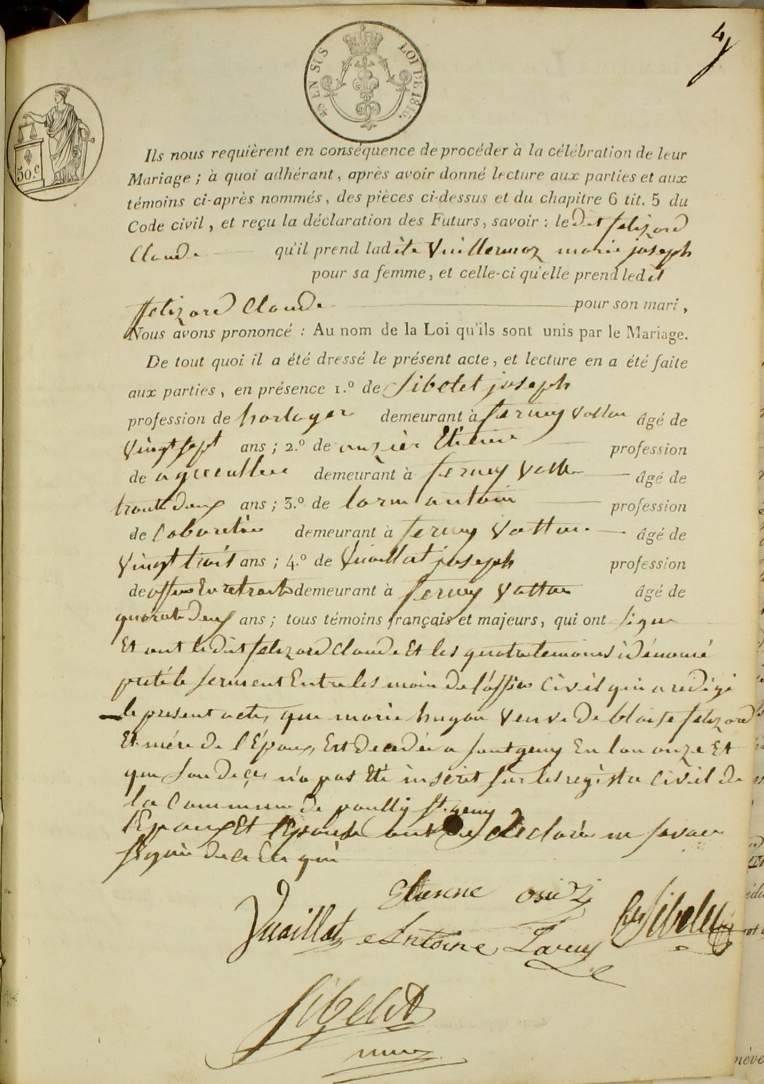 4
EN SUS LOI DE 1816.
50.c
Ils nous requièrent en conséquence de procéder à la célébration de leur
Mariage ; à quoi adhérant, après avoir donné lecture aux parties et aux
témoins ci-après nommés, des pièces ci-dessus et du chapitre 6 tit. 5 du
Code civil, et reçu la déclaration des Futurs, savoir : le dit felizard
Claude qu'il prend ladite Vuillermoz marie joseph
pour sa femme, et celle-ci qu'elle prend ledit
ffelizard Claude pour son mari,
Nous avons prononcé : Au nom de la Loi qu'ils sont unis par le Mariage.
De tout quoi il a été dressé le présent acte, et lecture en a été faite
aux parties, en présence 1.º de Sibelet joseph
profession de horloger demeurant à ferney Voltau âgé de
Vingt sept ans ; 2.º de Etienne profession
de demeurant à ferney âgé de
trante deux ans ; 3.º de antoine profession
de Cabaretie demeurant à ferney Vottau âgé de
Vingt trois ans ; 4.º de Vuaillat joseph profession
de offisie En retraite demeurant à ferney Vottau âgé de
quarante deux ans ; tous témoins français et majeurs, qui ont signe
Et ont le dit felizard Claude Et les quatre temoins
prété le serment Entre les main de l'offisie Civil qui a redigé
le present acte, que marie hugon Veuve De blaise felizard
Et mére de l'Epoux, Est decedée a Santgeny En lan onze Et
que Son deces n'a pas Eté inserit sur les registre Civil de
la Commune de pouilly St geny
l'Epoux Et l'Epouse ont declaré ne savoir
signé de ce Enquis
Etienne
Vuaillat Antoine Sibelet
Sibelet